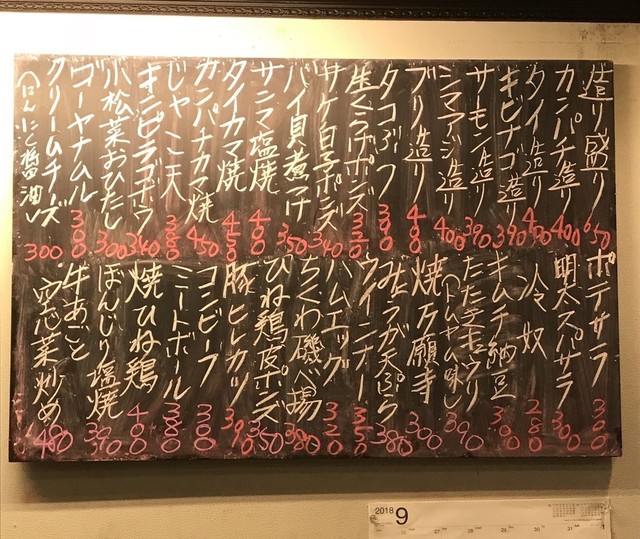 造り盛り 650
カンパチ造り 400
タイ造り 400
キビナゴ造り 390
サーモン造り 390
シマアジ造り 400
ブリ造り 400
タコぶつ 390
生くらげポンズ 350
サケ白子ポンズ 340
バイ貝煮つけ 350
サンマ塩焼 400
タイカマ焼 450
カンパチカマ焼 450
じゃこ天 380
キンピラゴボウ 340
小松菜おひたし 300
ゴーヤナムル 300
クリームチーズ
(わさび醤油) 300
ポテサラ 300
明太スパサラ 300
冷奴 280
キムチ納豆 390
たたききゅうり
(トムヤム味) 390
焼万願寺 300
みょうが天ぷら 380
ウインナー 350
ハムエッグ 320
ちくわ磯べ揚 380
ひね鶏皮ポンズ 350
豚ヒレカツ 390
コンビーフ 300
ミートボール 380
焼ひね鶏 400
ぼんじり塩焼 390
牛あごと
空心菜炒め 480
2018 9